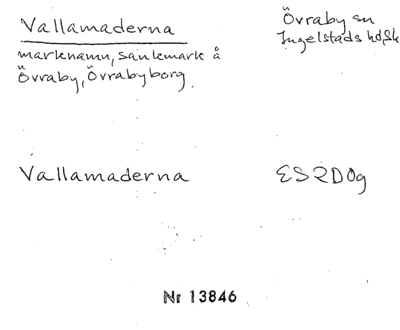 Vallamaderna
Övraby sn
Ingelstads hd, Sk
marknamn, sankmark å
Övraby, Övrabyborg
Vallamaderna
ES2D0g
Nr 13846